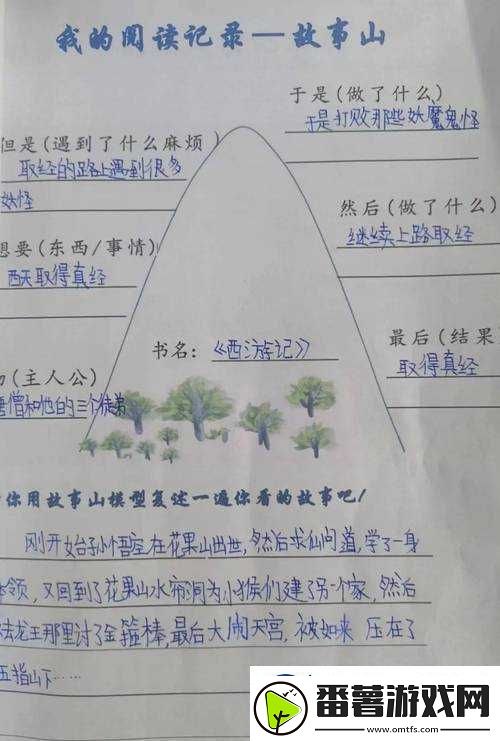 我的阅读记录—故事山
于是(做了什么)
于是打败那些妖魔鬼怪
但是(遇到了什么麻烦)
取经的路上遇到很多
妖怪
然后(做了什么)
继续上路取经
想要(东西/事情)
西天取得真经
最后(结果
取得真经
书名:《西游记》
(主人公)
唐僧和他的三个徒弟
你用故事山模型复述一遍你看的故事吧!
刚开始孙悟空在花果山出世,然后求仙问道,学了一身
本领,又回到了花果山水帘洞为小猴们建了另一个家,然后
去龙王那里讨了金箍棒,最后大闹天宫,被如来 压在了
五指山下……
番薯游戏网
www.omtfs.com